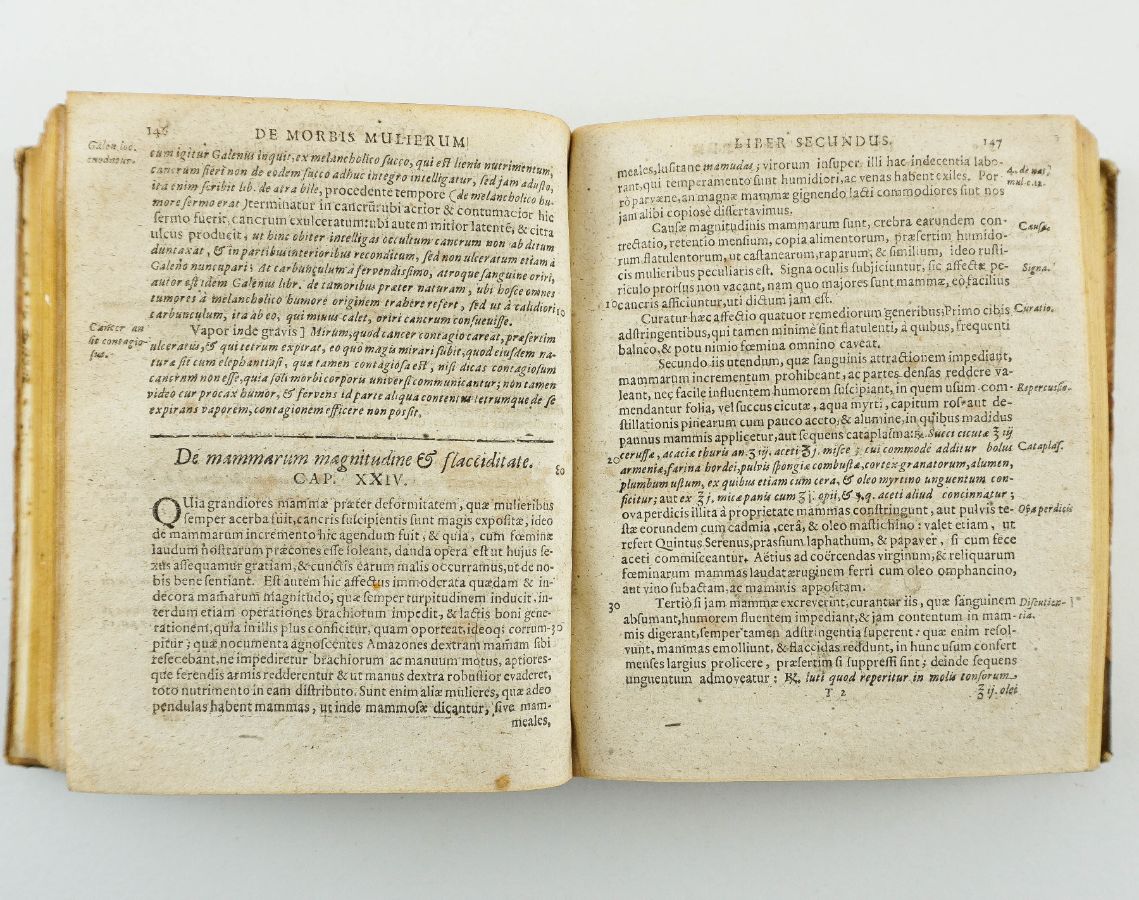 146
DE MORBIS MULIERUM
Galen loc.
cum igitur Galenus inquit, ex melancholico succo, qui est lienis nutrimentum,
cancrum fieri non de eodem succo adhuc integro intelligatur, sed jam adusto,
ita enim scribit lib. de atra bile, procedente tempore (de melancholico hu-
more sermo erat) terminatur in cancrũ: ubi acrior & contumacior hic
sermo fuerit, cancrum exulceratum: ubi autem mitior latentẽ, & citra
ulcus producit, ut hinc obiter intelligas occultum cancrum non ab ditum
duntaxat, & in partibus interioribus reconditum, sed non ulceratum etiam à
Galeno nuncupari; At carbunculum à fervendissimo, atroque sanguine oriri,
autor est idem Galenus libr. de tumoribus præter naturam, ubi hosce omnes
tumores à melancholico humore originem trahere refert, sed ut à calidiori 10
carbunculum, ita ab eo, qui minus calet, oriri cancrum consuevisse.
Cancer an
sit contagio-
sus.
Vapor inde gravis] Mirum, quod cancer contagio careat, præsertim
ulceratus, & qui tetrum expirat, eo quo magis mirari subit, quod ejusdem na-
turæ sit cum elephantiasi, quæ tamen contagiosa est, nisi dicas contagiosum
cancrum non esse, quia soli morbi corporis universi communicantur; non tamen
video cur procax humor, & fervens id parte aliqua contentus tetrumque de se
expirans vaporem, contagionem efficere non possit.
De mammarum magnitudine & flacciditate.
20
CAP. XXIV.
QUia grandiores mammæ præter deformitatem, quæ mulieribus
semper acerba fuit, cancris suscipientis sunt magis expositæ, ideo
de mammarum incremento hic agendum fuit, & quia, cum fœminæ
laudum nostrarum præcones esse soleant, danda opera est ut hujus se-
xus assequamur gratiam, & cunctis earum malis occurramus, ut de no-
bis bene sentiant. Est autem hic affectus immoderata quædam & in-
decora mam̃arum magnitudo, quæ semper turpitudinem inducit, in-
terdum etiam operationes brachiorum impedit, & lactis boni gene-
rationem, quia in illis plus conficitur, quam oporteat, ideoq; corrum- 30
pitur; quæ nocumenta agnoscentes Amazones dextram mam̃am sibi
resecebant, ne impediretur brachiorum ac manuum motus, aptiores-
que ferendis armis redderentur & ut manus dextra robustior evaderet,
toto nutrimento in eam distributo. Sunt enim aliæ mulieres, quæ adeo
pendulas habent mammas, ut inde mammosæ dicantur, sive mam-
meales,
LIBER SECUNDUS.
147
meales, lusitane mamudas; virorum insuper illi hac indecentia labo-
rant, qui temperamento sunt humidiori, ac venas habent exiles. Por-
rò parvæne, an magnæ mammæ gignendo lacti commodiores sint nos
jam alibi copiosè dissertavimus.
4. de nat.
mul. c. 12.
Causæ magnitudinis mammarum sunt, crebra earundem con-
trectatio, retentio mensium, copia alimentorum, præsertim humido-
rum flatulentorum, ut castanearum, raparum, & similium, ideo rusti-
cis mulieribus peculiaris est. Signa oculis subjiciuntur, sic affectæ pe-
riculo prorsus non vacant, nam quo majores sunt mammæ, eo facilius
10 cancris afficiuntur, uti dictum jam est.
Causæ.
Signa.
Curatur hæc affectio quatuor remediorum generibus: Primo cibis
adstringentibus, qui tamen minimè sint flatulenti, à quibus, frequenti
balneo, & potu nimio fœmina omnino caveat.
Curatio.
Secundo iis utendum, quæ sanguinis attractionem impediant,
mammarum incrementum prohibeant, ac partes densas reddere va-
leant, nec facile influentem humorem suscipiant, in quem usum com-
mendantur folia, vel succus cicutæ, aqua myrti, capitum rosæ aut de-
stillationis pinearum cum pauco aceto, & alumine, in quibus madidus
pannus mammis applicetur, aut sequens cataplasma: ℞. Succi cicutæ ℥ iij
20 cerussæ, acaciæ thuris an. ʒ iij. aceti ℥ j. misce; cui commodè additur bolus
armeniæ, farina hordei, pulvis spongiæ combustæ, cortex granatorum, alumen,
plumbum ustum, ex quibus etiam cum cera, & oleo myrtino unguentum con-
ficitur; aut ex ℥ j. micæ panis cum ʒ j. opii, & q. aceti aliud concinnatur;
ova perdicis illita à proprietate mammas constringunt, aut pulvis te-
stæ eorundem cum cadmia, cerâ, & oleo mastichino: valet etiam, ut
refert Quintus Serenus, prassium, laphathum, & papaver, si cum fece
aceti commisceantur. Aëtius ad coërcendas virginum, & reliquarum
fœminarum mammas laudat æruginem ferri cum oleo omphancino,
aut vino subactam, ac mammis appositam.
Repercussiva.
Cataplas.
Ova perdicis
30 Tertiò si jam mammæ excreverint, curantur iis, quæ sanguinem
absumant, humorem fluentem impediant, & jam contentum in mam-
mis digerant, semper tamen adstringentia superent: quæ enim resol-
vunt, mammas emolliunt, & flaccidas reddunt, in hunc usum confert
menses largius prolicere, præsertim si suppressi sint; deinde sequens
unguentum admoveatur: ℞. luti quod reperitur in molis tonsorum
Discutien-
tia.
T 2
℥ ij. olei